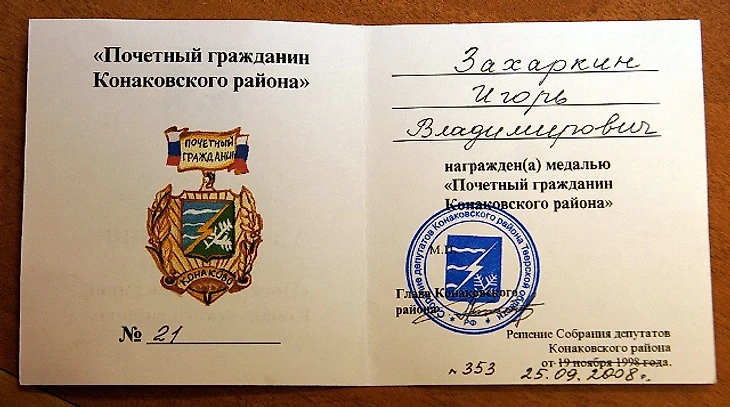 «Почетный гражданин
Конаковского района»
ПОЧЕТНЫЙ
ГРАЖДАНИН
КОНАКОВО
№ 21
Захаркин
Игорь
Владимирович
награжден(а) медалью
«Почетный гражданин
Конаковского района»
М.П.
Собрание депутатов Конаковского района Тверской области
* РФ *
Глава Конаковского
района
Решение Собрания депутатов
Конаковского района
от 19 ноября 1998 года.
№ 353 25.09.2008г.